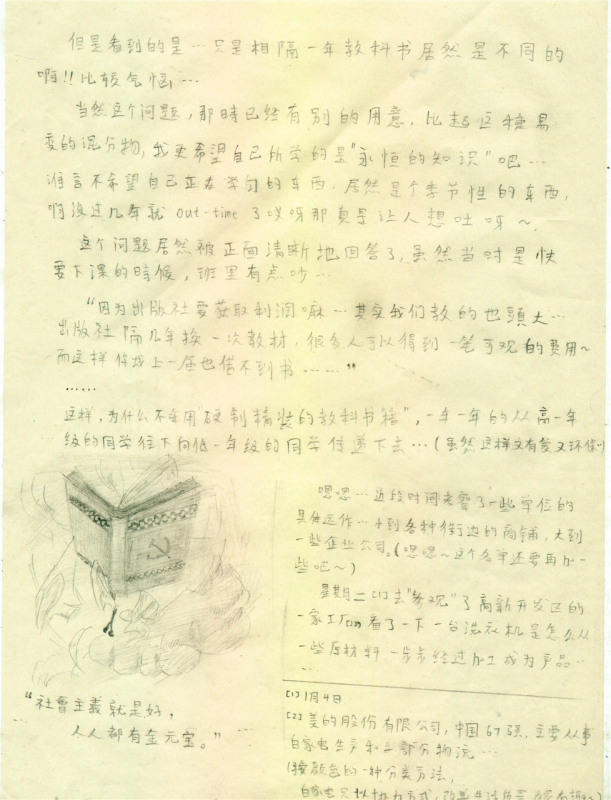 但是看到的是…只是相隔一年教科书居然是不同的
啊!!比较气恼…
当然这个问题，那時已经有别的用意，比起这種易
变的混分物，我更希望自己所学的是"永恒的知识"吧…
谁言不希望自己正在学习的东西，居然是个季节性的东西，
啊没过几年就 out-time 了哎呀那真是让人想吐呀～
这个问题居然被正面清晰地回答了，虽然当时是快
要下课的時候，班里有点吵…
"因为出版社要获取利润嘛…其实我们教的也頭大…
出版社隔几年换一次教材，很多人可以得到一笔可观的费用~
而这样你找上一届也借不到书……"
……
这样，为什么不采用"硬制精装的教科书籍"，一年一年的从高一年
级的同学往下向低一年级的同学传递下去…(虽然这样又有爱又环保!)
嗯嗯…这段时间考察了一些单位的
具体运作…小到各种街边的商铺，大到
一些企业公司。(嗯嗯~这个名单还要再加一
些吧~)
星期二[1]去"参观"了高新开发区的
一家工厂[2]看了一下一台洗衣机是怎么从
一些原材料一步步经过加工成为产品…
…
[1]1月4日
[2]美的股份有限公司，中国67强，主要从事
白家电生产和一部分物流…
(按颜色的一种分类方法，
白家电
"社會主義就是好，
人人都有金元宝。"